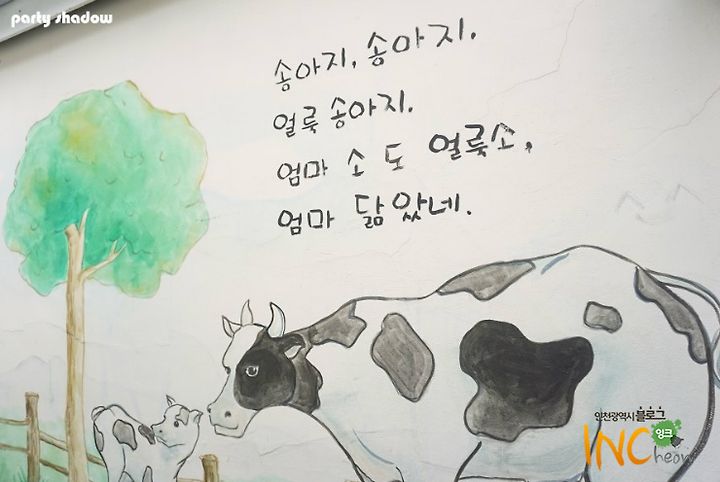 party shadow
송아지, 송아지.
얼룩 송아지.
엄마 소 도 얼룩소,
엄마 닮았네.
인천광역시 블로그
잉크
INCheon